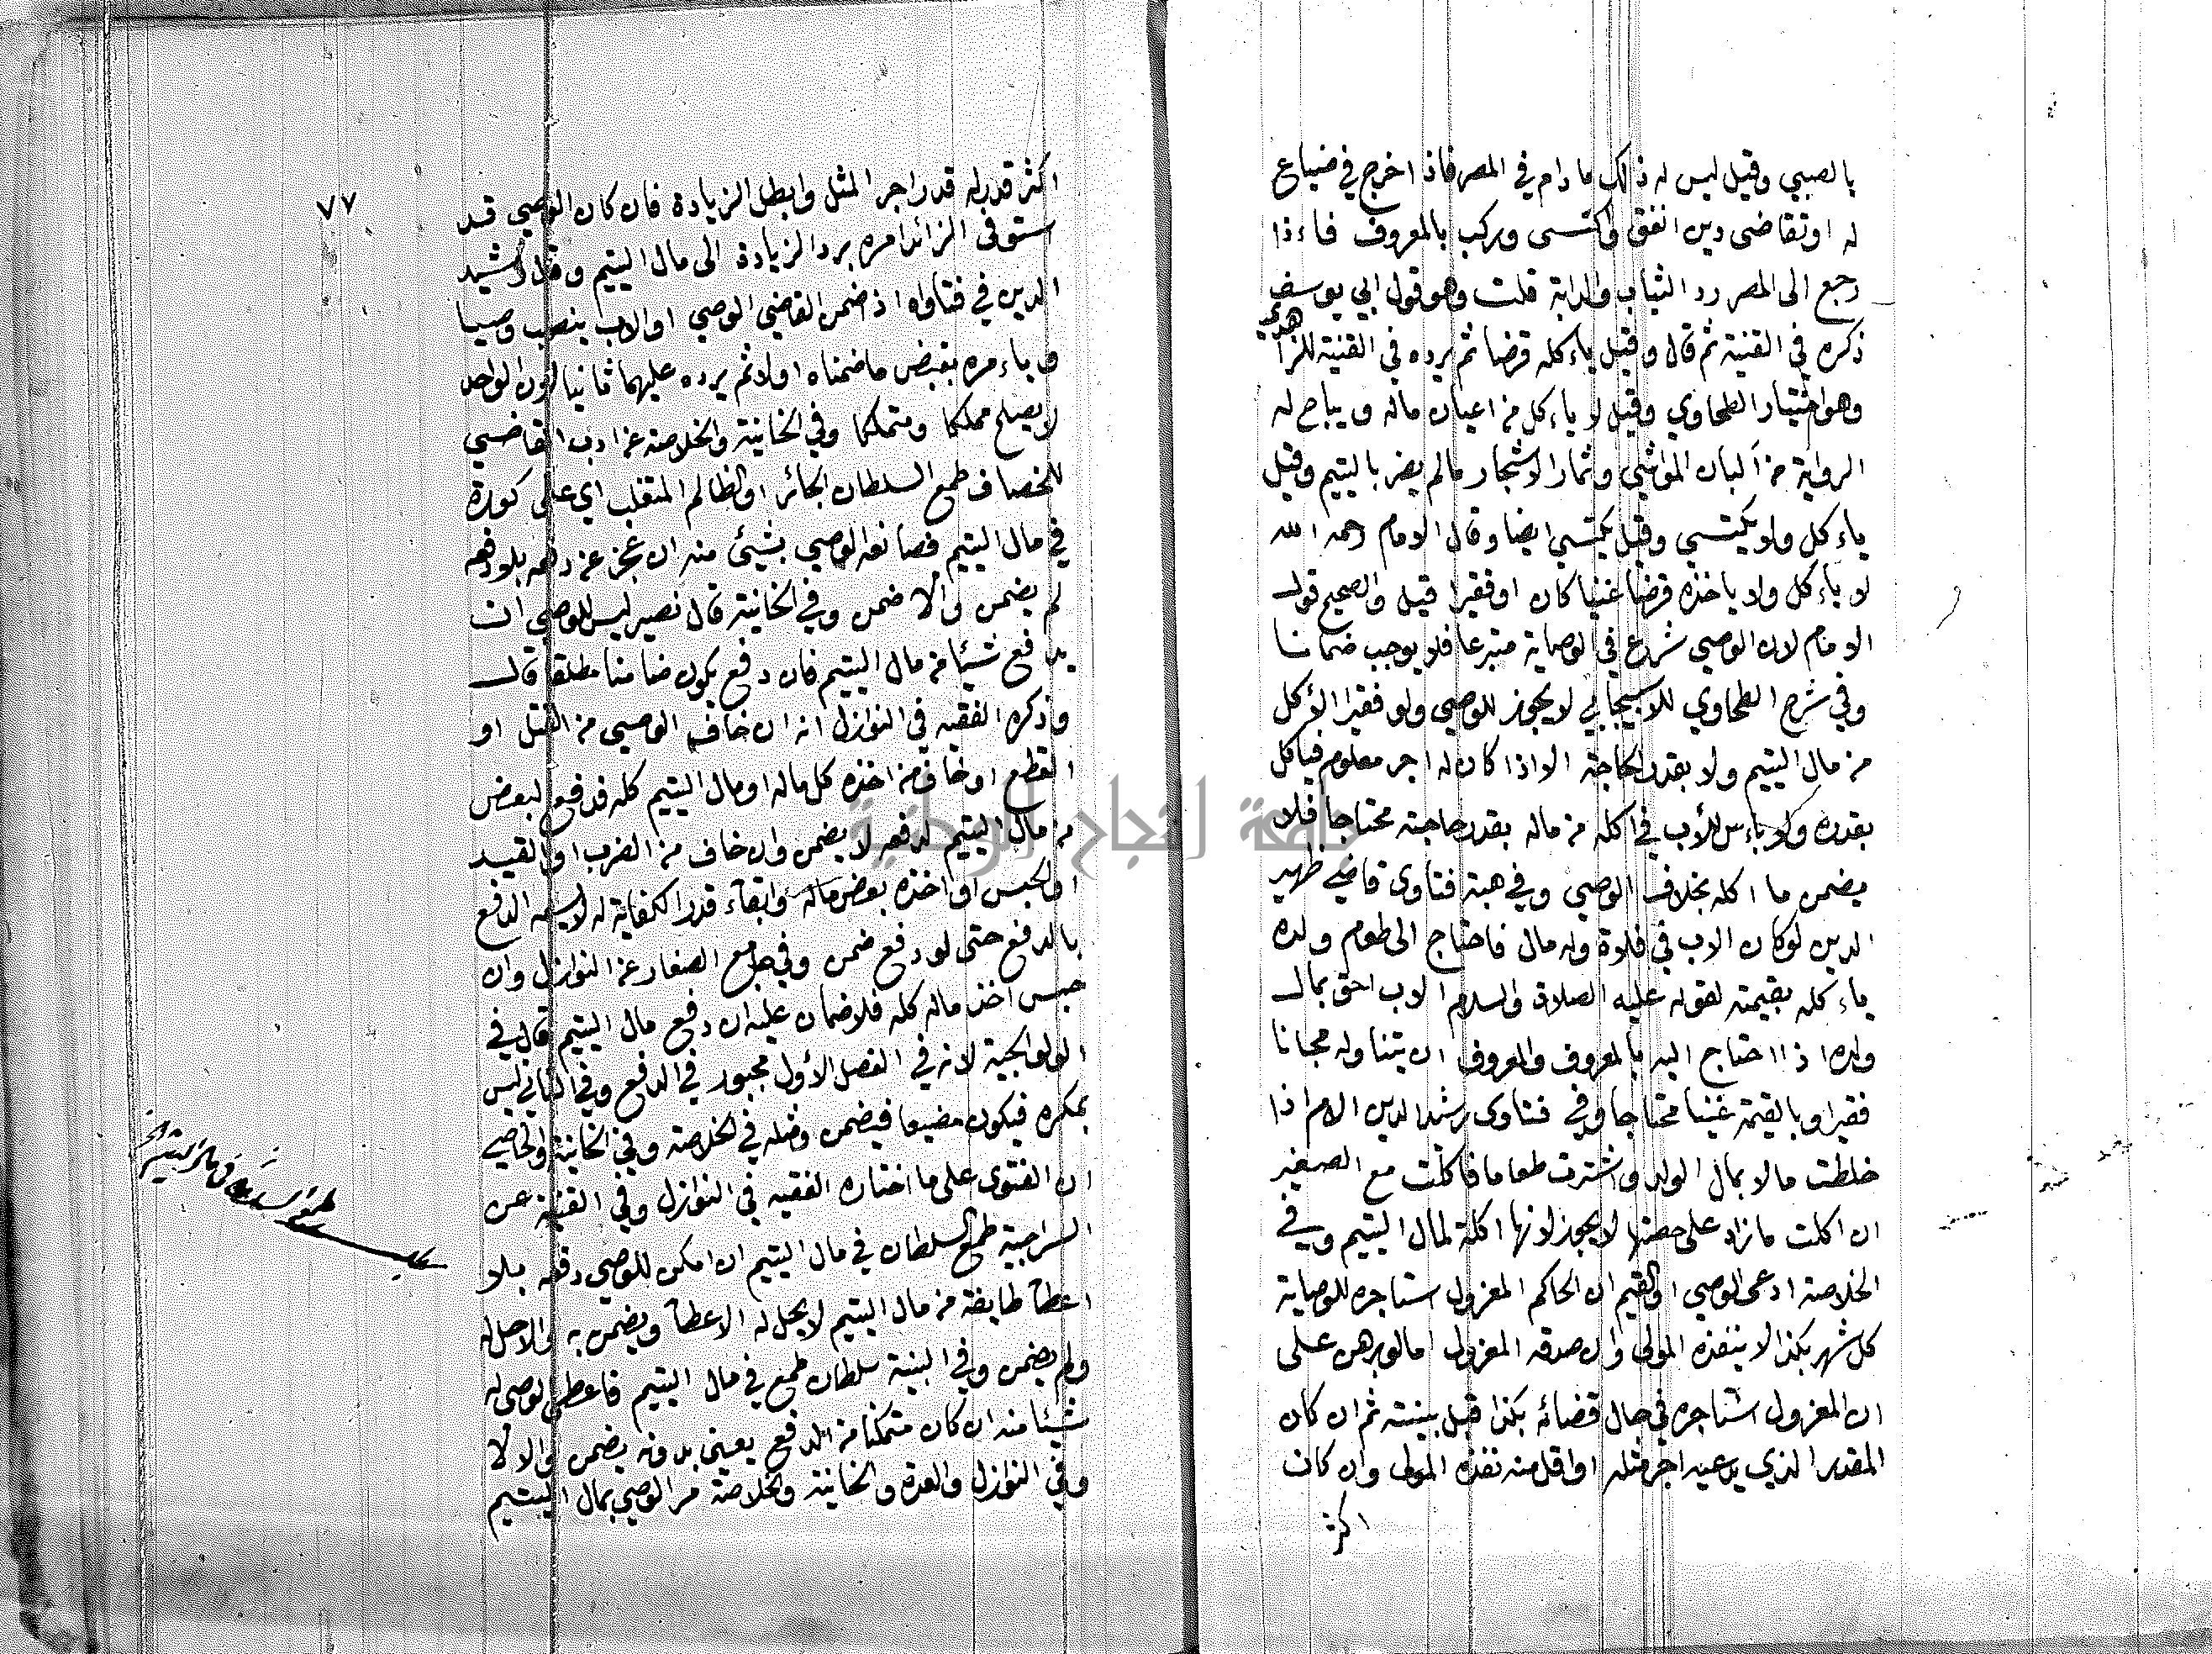 بالصبي وقيل ليس له ذالك ما دام في المصر فاذا خرج في ضياع
له او تقاضى دين انفق واكتسى وركب بالمعروف فاءذا
رجع الى المصر رد الثياب والدابة قلت وهو قول ابي يوسف
ذكره في القنية ثم قال وقيل ياءكله قرضا ثم يرده في القنية للزاهدي
وهو اختيار الطحاوي وقيل لا ياءكل من اعيان ماله ويباح له
الرواية من البان المواشي وثمار الاشجار مالم يضر باليتيم وقيل
ياءكل ولا يكتسي وقيل يكتسي ايضا وقال الامام رحمه الله
لا ياءكل ولا ياخذه قرضا غنيا كان او فقيرا قيل والصحيح قول
الامام لان الوصي شرع في الوصاية متبرعا فلا يوجب ضمانا
وفي شرح الطحاوي للاسبيجابي لا يجوز للوصي ولو فقيرا الأكل
من مال اليتيم ولا بقدر الحاجة الا اذا كان له اجر معلوم فياكل
بقدره ولا باءس للأب في اكله من ماله بقدر حاجته محتاجا فلا
يضمن ما اكله بخلاف الوصي وفي هبة فتاوى قاضي ظهير
الدين لو كان الاب في فلاة وله مال فاحتاج الى طعام ولده
ياءكله بقيمته لقوله عليه الصلاة والسلام الاب احق بمال
ولده اذا احتاج اليه بالمعروف والمعروف ان يتناوله مجانا
فقيرا وبالقيمة غنيا محتاجا وفي فتاوى رشيد الدين الام اذا
خلطت مالا بمال الولد واشترت طعاما فاكلت مع الصغير
ان اكلت ما زاد على حصتها لا يجوز لانها اكلة لمال اليتيم وفي
الخلاصة ادعى الوصي او القيم ان الحاكم المعزول استاجره للوصاية
كل شهر بكذا لا ينفذه المولى وان صدقه المعزول اما لو برهن على
ان المعزول استاجره في حال قضائه بكذا قبل بينته ثم ان كان
المقدر الذي يدعيه اجر مثله او اقل منه نفذه المولى وان كان
اكثر
٧٧
اكثر قدر له قدر اجر المثل وابطل الزيادة فان كان الوصي قد
استوفى الزائد امره برد الزيادة الى مال اليتيم وقال رشيد
الدين في فتاواه اذ اضمن القاضي الوصي او الاب ينصب وصيا
وياءمره بقبض ما ضمناه اولا ثم يرده عليهما ثانيا لان الواحد
لا يصلح مملكا ومتملكا وفي الخانية والخلاصة عن ادب القاضي
للخصاف طمع السلطان الجائر او الظالم المتغلب اي على كورة
في مال اليتيم فصانعه الوصي بشيئ منه ان عجز عن دفعه بلا دفعه
لم يضمن والا ضمن وفي الخانية قال نصير ليس للوصي ان
يدفع شيئا من مال اليتيم فان دفع يكون ضامنا مطلقا قال
وذكره الفقيه في النوازل انه ان خاف الوصي من القتل او
القطع او خاف من اخذه كل ماله او مال اليتيم كله فدفع البعض
من مال اليتيم لدفعه لا يضمن وان خاف من الضرب او القيد
او الحبس او اخذه بعض ماله وابقاء قدر الكفاية له لا يسعه الدفع
بالدفع حتى لو دفع ضمن وفي جامع الصغار عن النوازل وان
حبس اخذ ماله كله فلا ضمان عليه ان دفع مال اليتيم قال في
الولوالجية لانه في الفصل الأول مجبور في الدفع وفي الثاني ليس
بمكره فيكون مضيعا فيضمن ومثله في الخلاصة وفي الخانية
ان الفتوى على ما اختاره الفقيه في النوازل وفي القنية عن
السراجية طمع السلطان في مال اليتيم ان امكن للوصي دفعه بلا
اعطاء طايفة من مال اليتيم لا يحل له الاعطاء ويضمن به والا حل له
ولم يضمن وفي المنية سلطان طمع في مال اليتيم فاعطى الوصي له
شيئا منه ان كان متمكنا من الدفع يعني بدونه يضمن والا لا
وفي النوازل والعدة والخانية والخلاصة مر الوصي بمال اليتيم
جامعة النجاح الوطنية